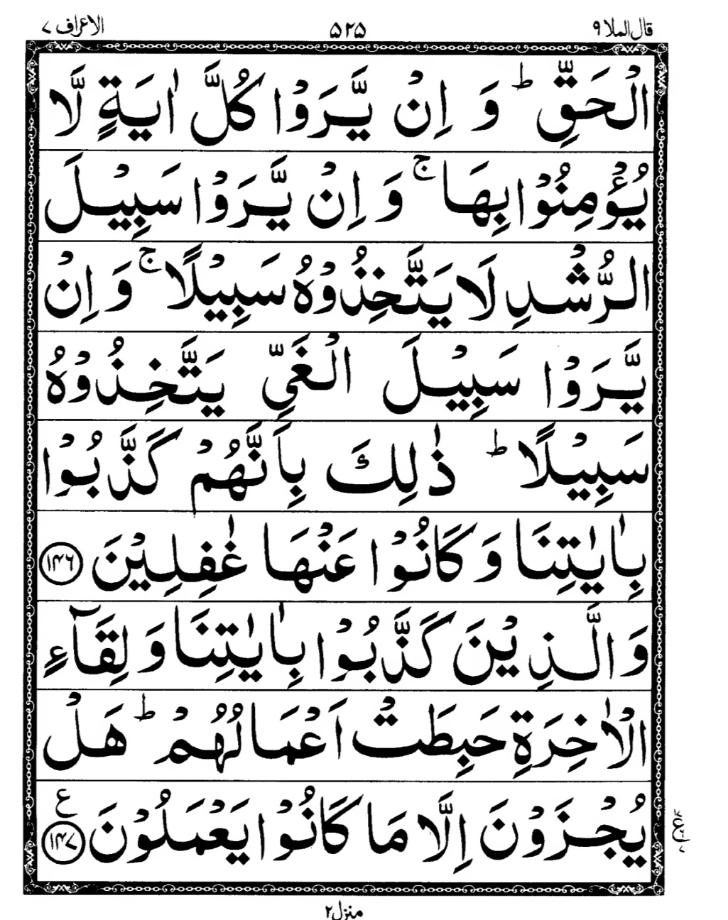 قال الملا ٩ ۵۲۵ الاعراف ۷
الْحَقِّ ؕ وَ اِنْ یَّرَوْا كُلَّ اٰیَةٍ لَّا
یُؤْمِنُوْا بِهَا ۚ وَ اِنْ یَّرَوْا سَبِیْلَ
الرُّشْدِ لَا یَتَّخِذُوْهُ سَبِیْلًا ۚ وَ اِنْ
یَّرَوْا سَبِیْلَ الْغَیِّ یَتَّخِذُوْهُ
سَبِیْلًا ؕ ذٰلِكَ بِاَنَّهُمْ كَذَّبُوْا
بِاٰیٰتِنَا وَ كَانُوْا عَنْهَا غٰفِلِیْنَ ﴿۱۴۶﴾
وَ الَّذِیْنَ كَذَّبُوْا بِاٰیٰتِنَا وَ لِقَآءِ
الْاٰخِرَةِ حَبِطَتْ اَعْمَالُهُمْ ؕ هَلْ
یُجْزَوْنَ اِلَّا مَا كَانُوْا یَعْمَلُوْنَ ﴿۱۴۷﴾ ع
منزل ۲